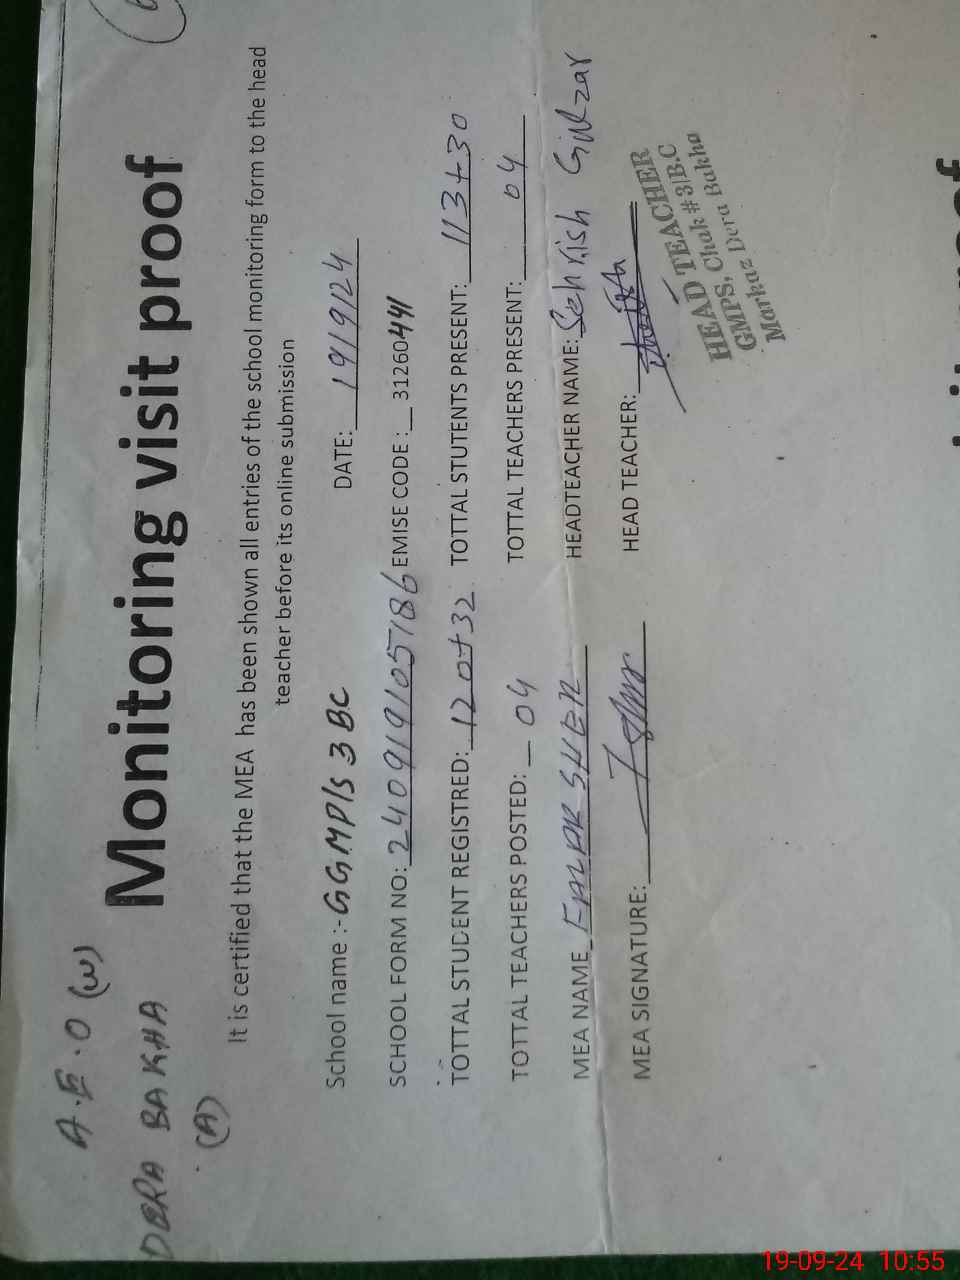 A.E.O (W)
DERA BAKHA
(A)
Monitoring visit proof
It is certified that the MEA has been shown all entries of the school monitoring form to the head
teacher before its online submission
School name :- GGMP/S 3 BC DATE: 19/9/24
SCHOOL FORM NO: 240919105186 EMISE CODE : 31260441
TOTTAL STUDENT REGISTRED: 120+32 TOTTAL STUTENTS PRESENT: 113+30
TOTTAL TEACHERS POSTED: 04 TOTTAL TEACHERS PRESENT: 04
MEA NAME SHER HEADTEACHER NAME: Sehrish Gulzar
MEA SIGNATURE: HEAD TEACHER:
HEAD TEACHER
GMPS, Chak # 3/B.C
Markaz Dera Bakha
19-09-24 10:55